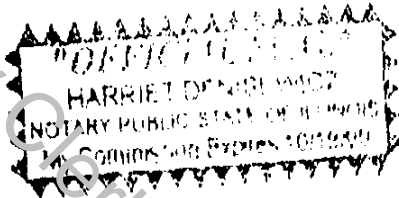 "OFFICIAL SEAL"
HARRIET
NOTARY PUBLIC STATE OF ILLINOIS
My Commission Expires 10/19/99